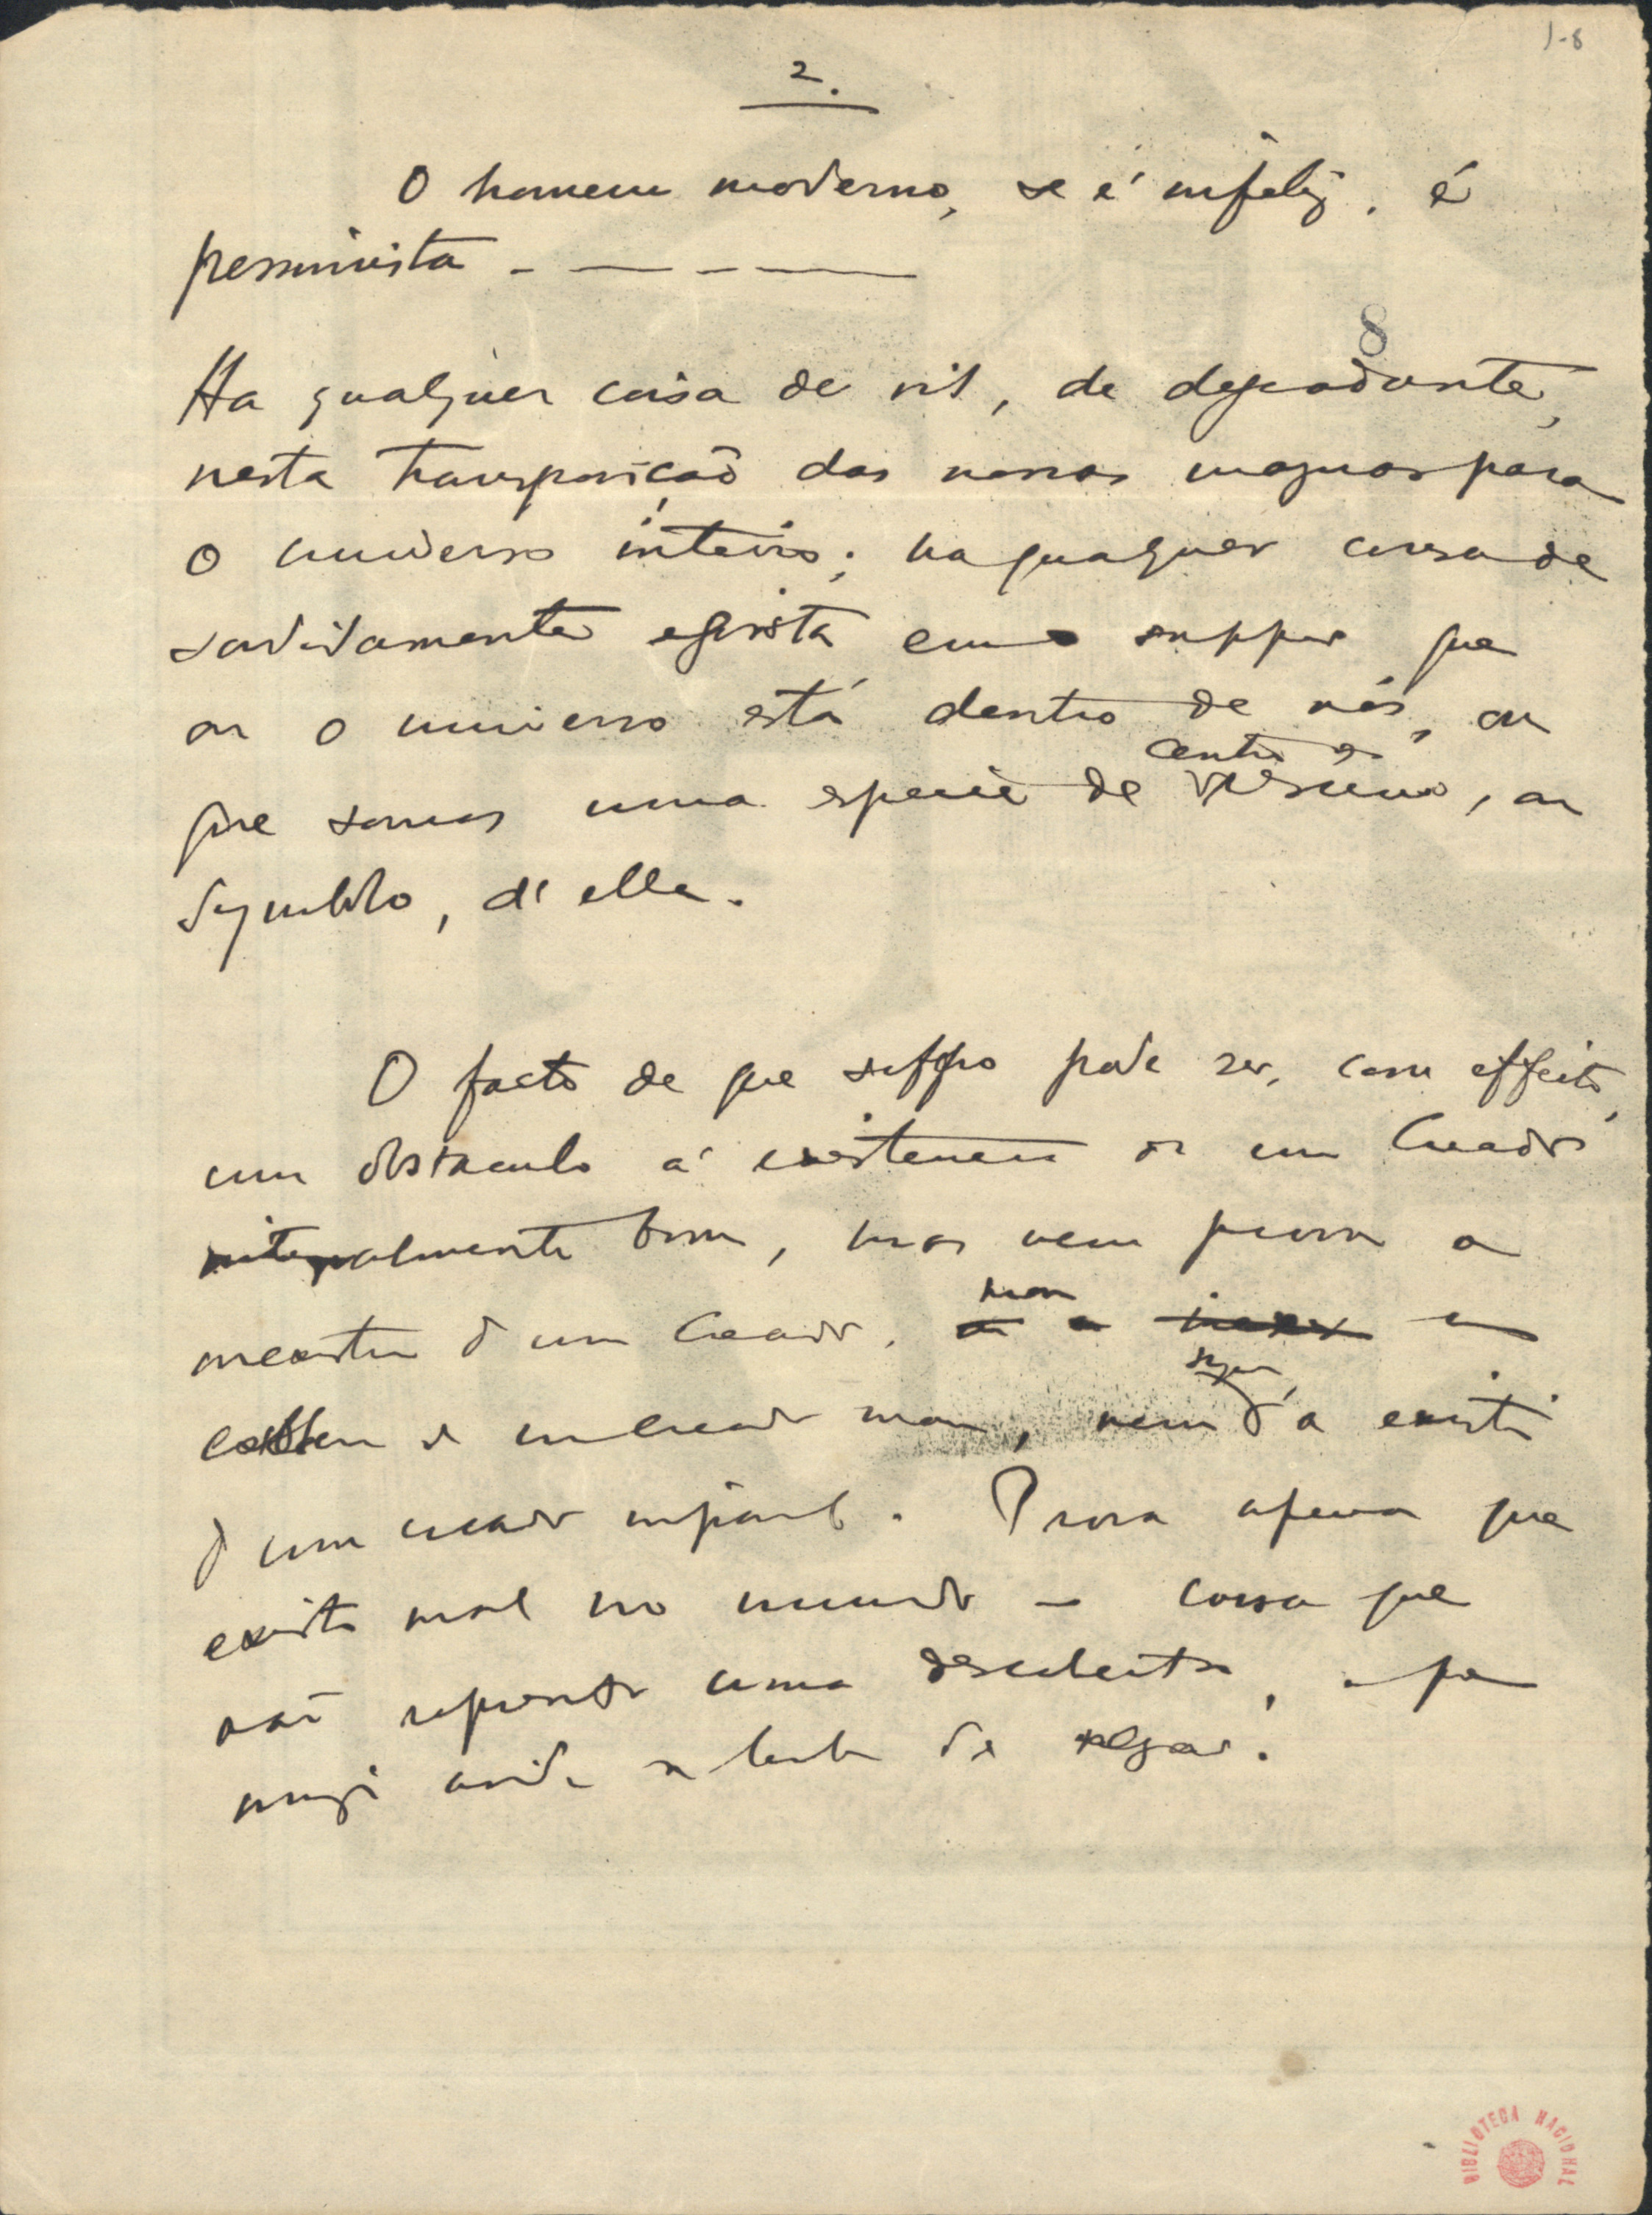 1-8
2.
O homem moderno, se é infeliz, é
pessimista - — - —
8
Ha qualquer coisa de vil, de degradante,
nesta transposição das nossas maguas para
o universo inteiro; ha qualquer cousa de
sordidamente egoista em suppor que
ou o universo está dentro de nós, ou
centro e
que somos uma especie de resumo, ou
symbolo, d'elle.
O facto de que soffro pode ser, com effeito,
um obstaculo á existencia de um Creador
integralmente bom, mas nem prova a
inexistencia d um Creador, nem a
existencia de um Creador mau, nem sequer a existencia
d um creador imparcial. Prova apenas que
existe mal no mundo — cousa que
não representa uma descoberta, e que
ninguem ainda se lembrou de negar.
BIBLIOTECA NACIONAL